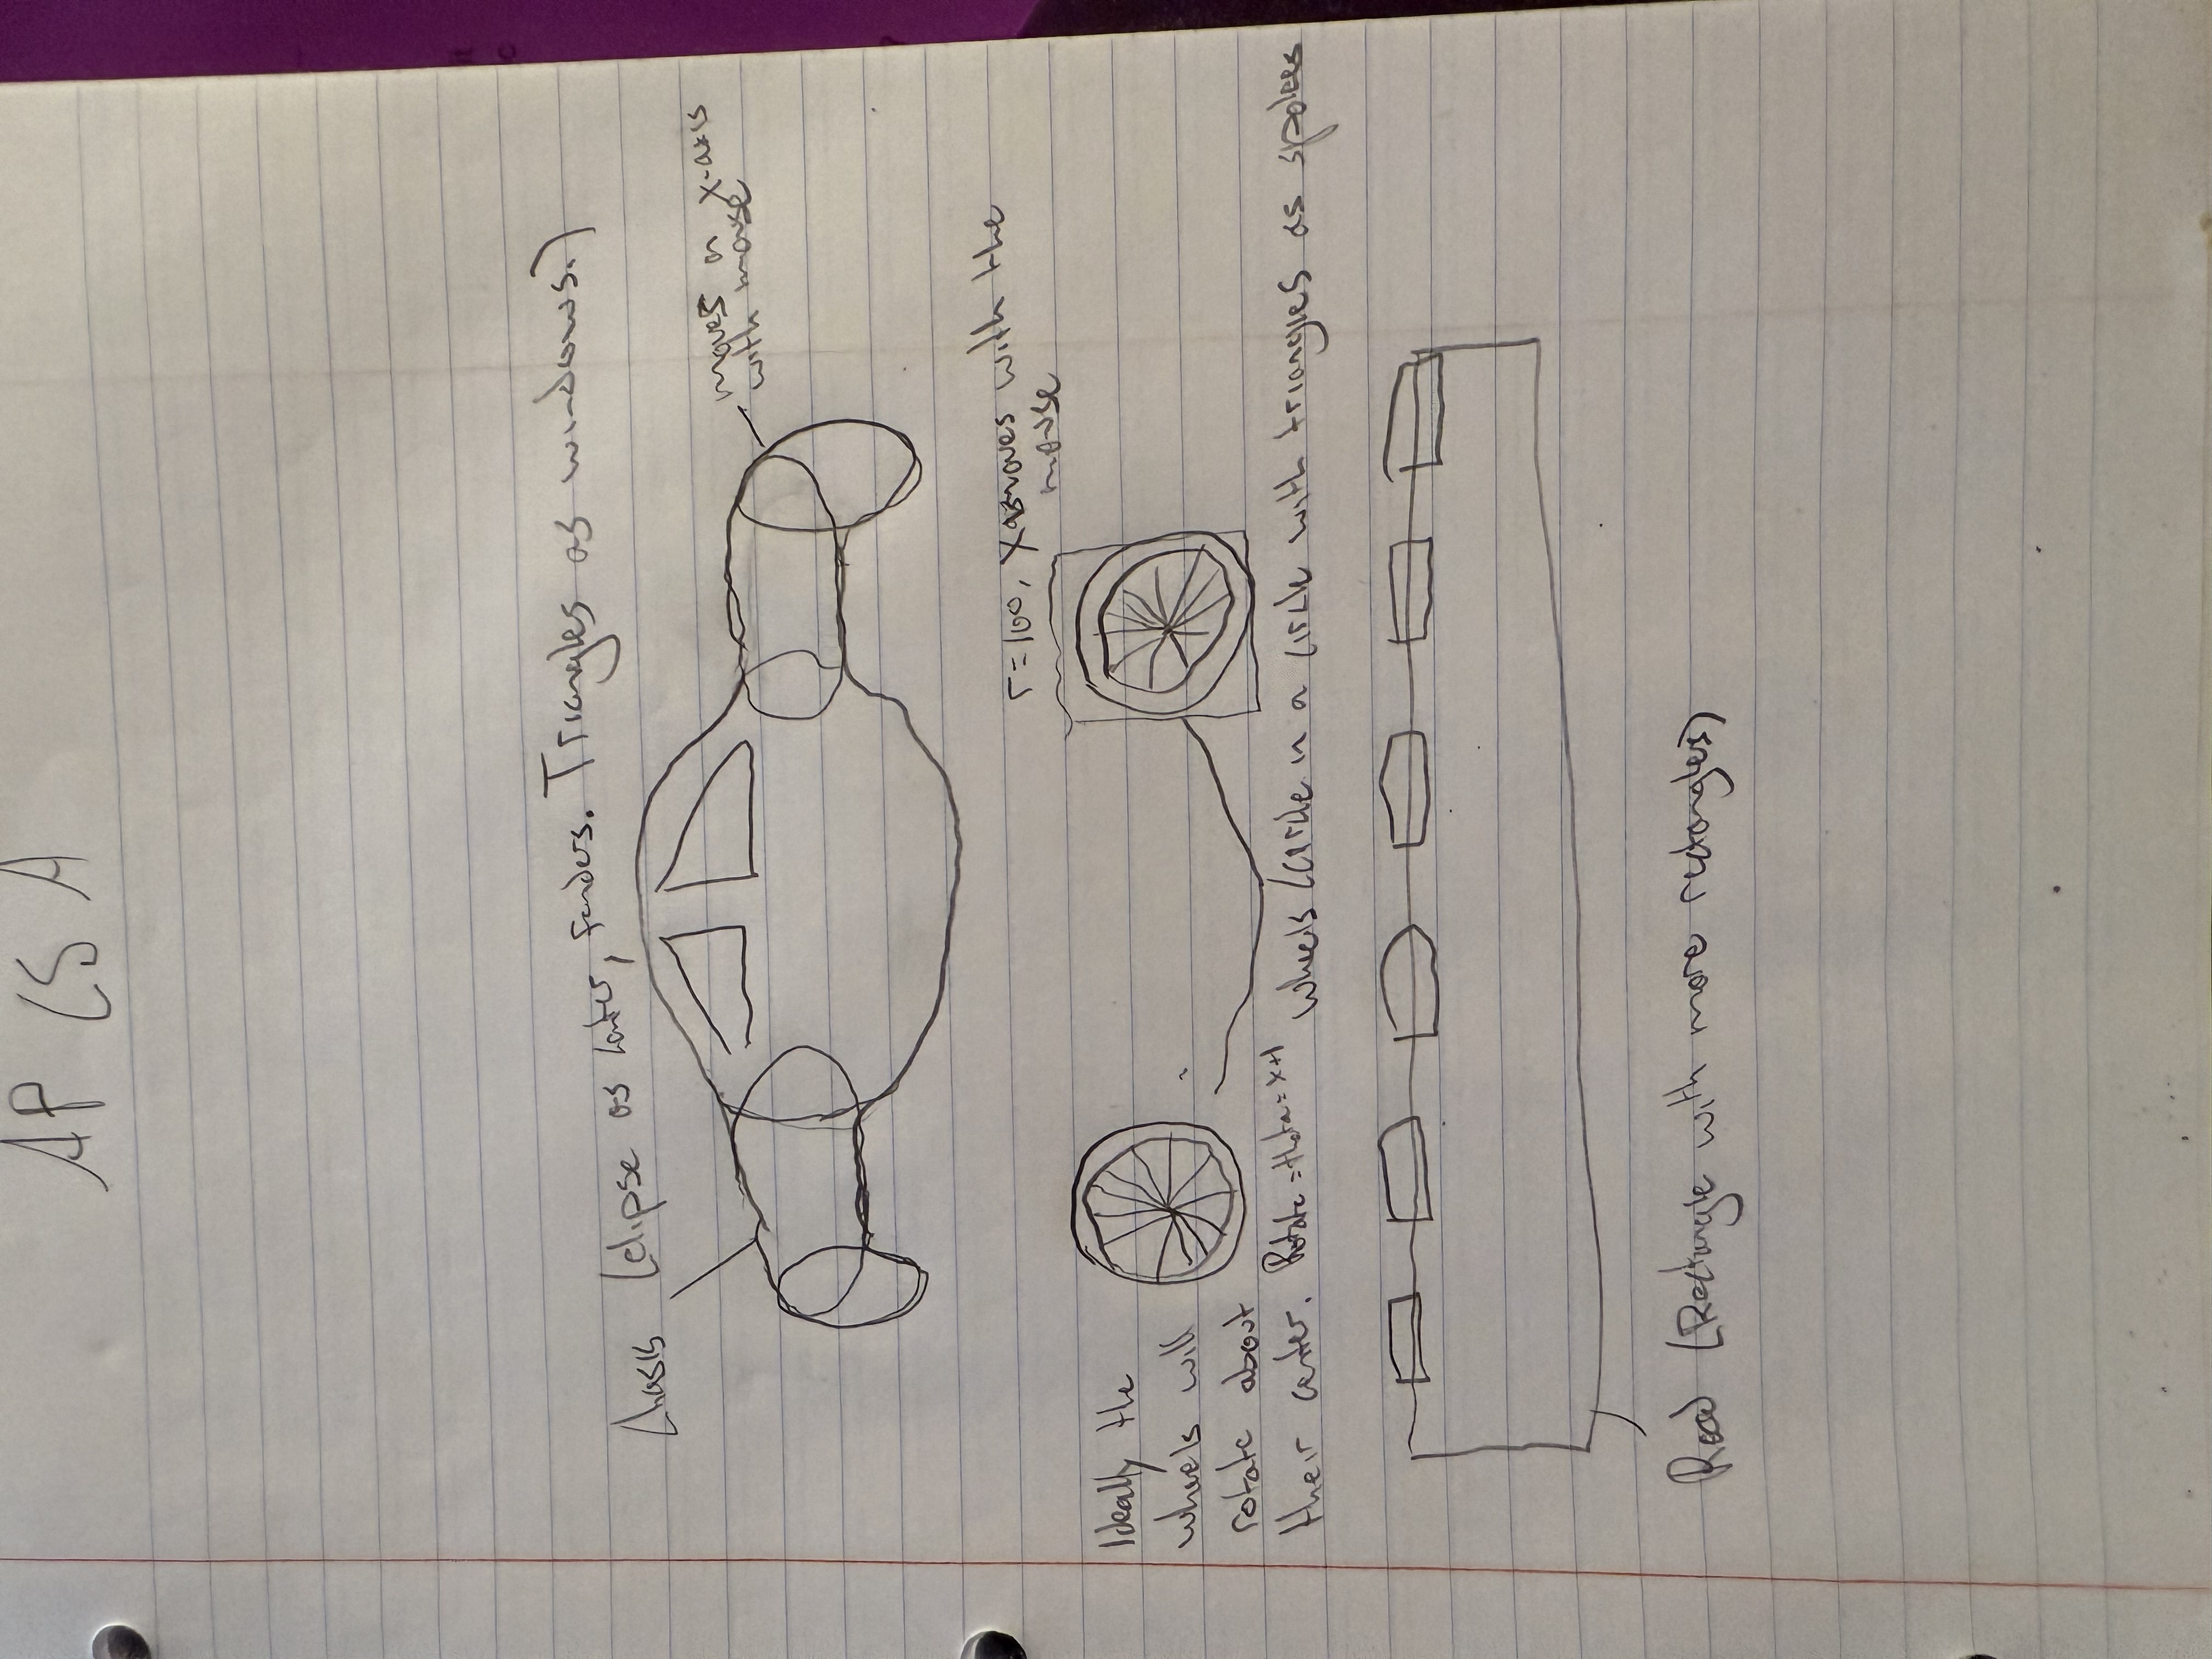 AP CS A
Chasis (elipse as center, fenders. Triangles as windows.)
moves on x-axis
with mouse
r=100, X moves with the
mouse
Ideally the
wheels will
rotate about
their center. Rotate = theta = x+1
wheels (circle in a circle with triangles as spokes
Road (Rectangle with more rectangles)